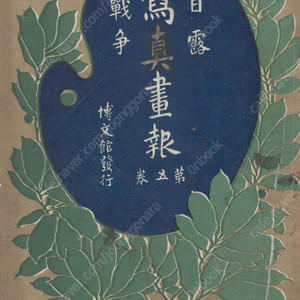 日露
戦争
寫真畫報
第五巻
博文館發行